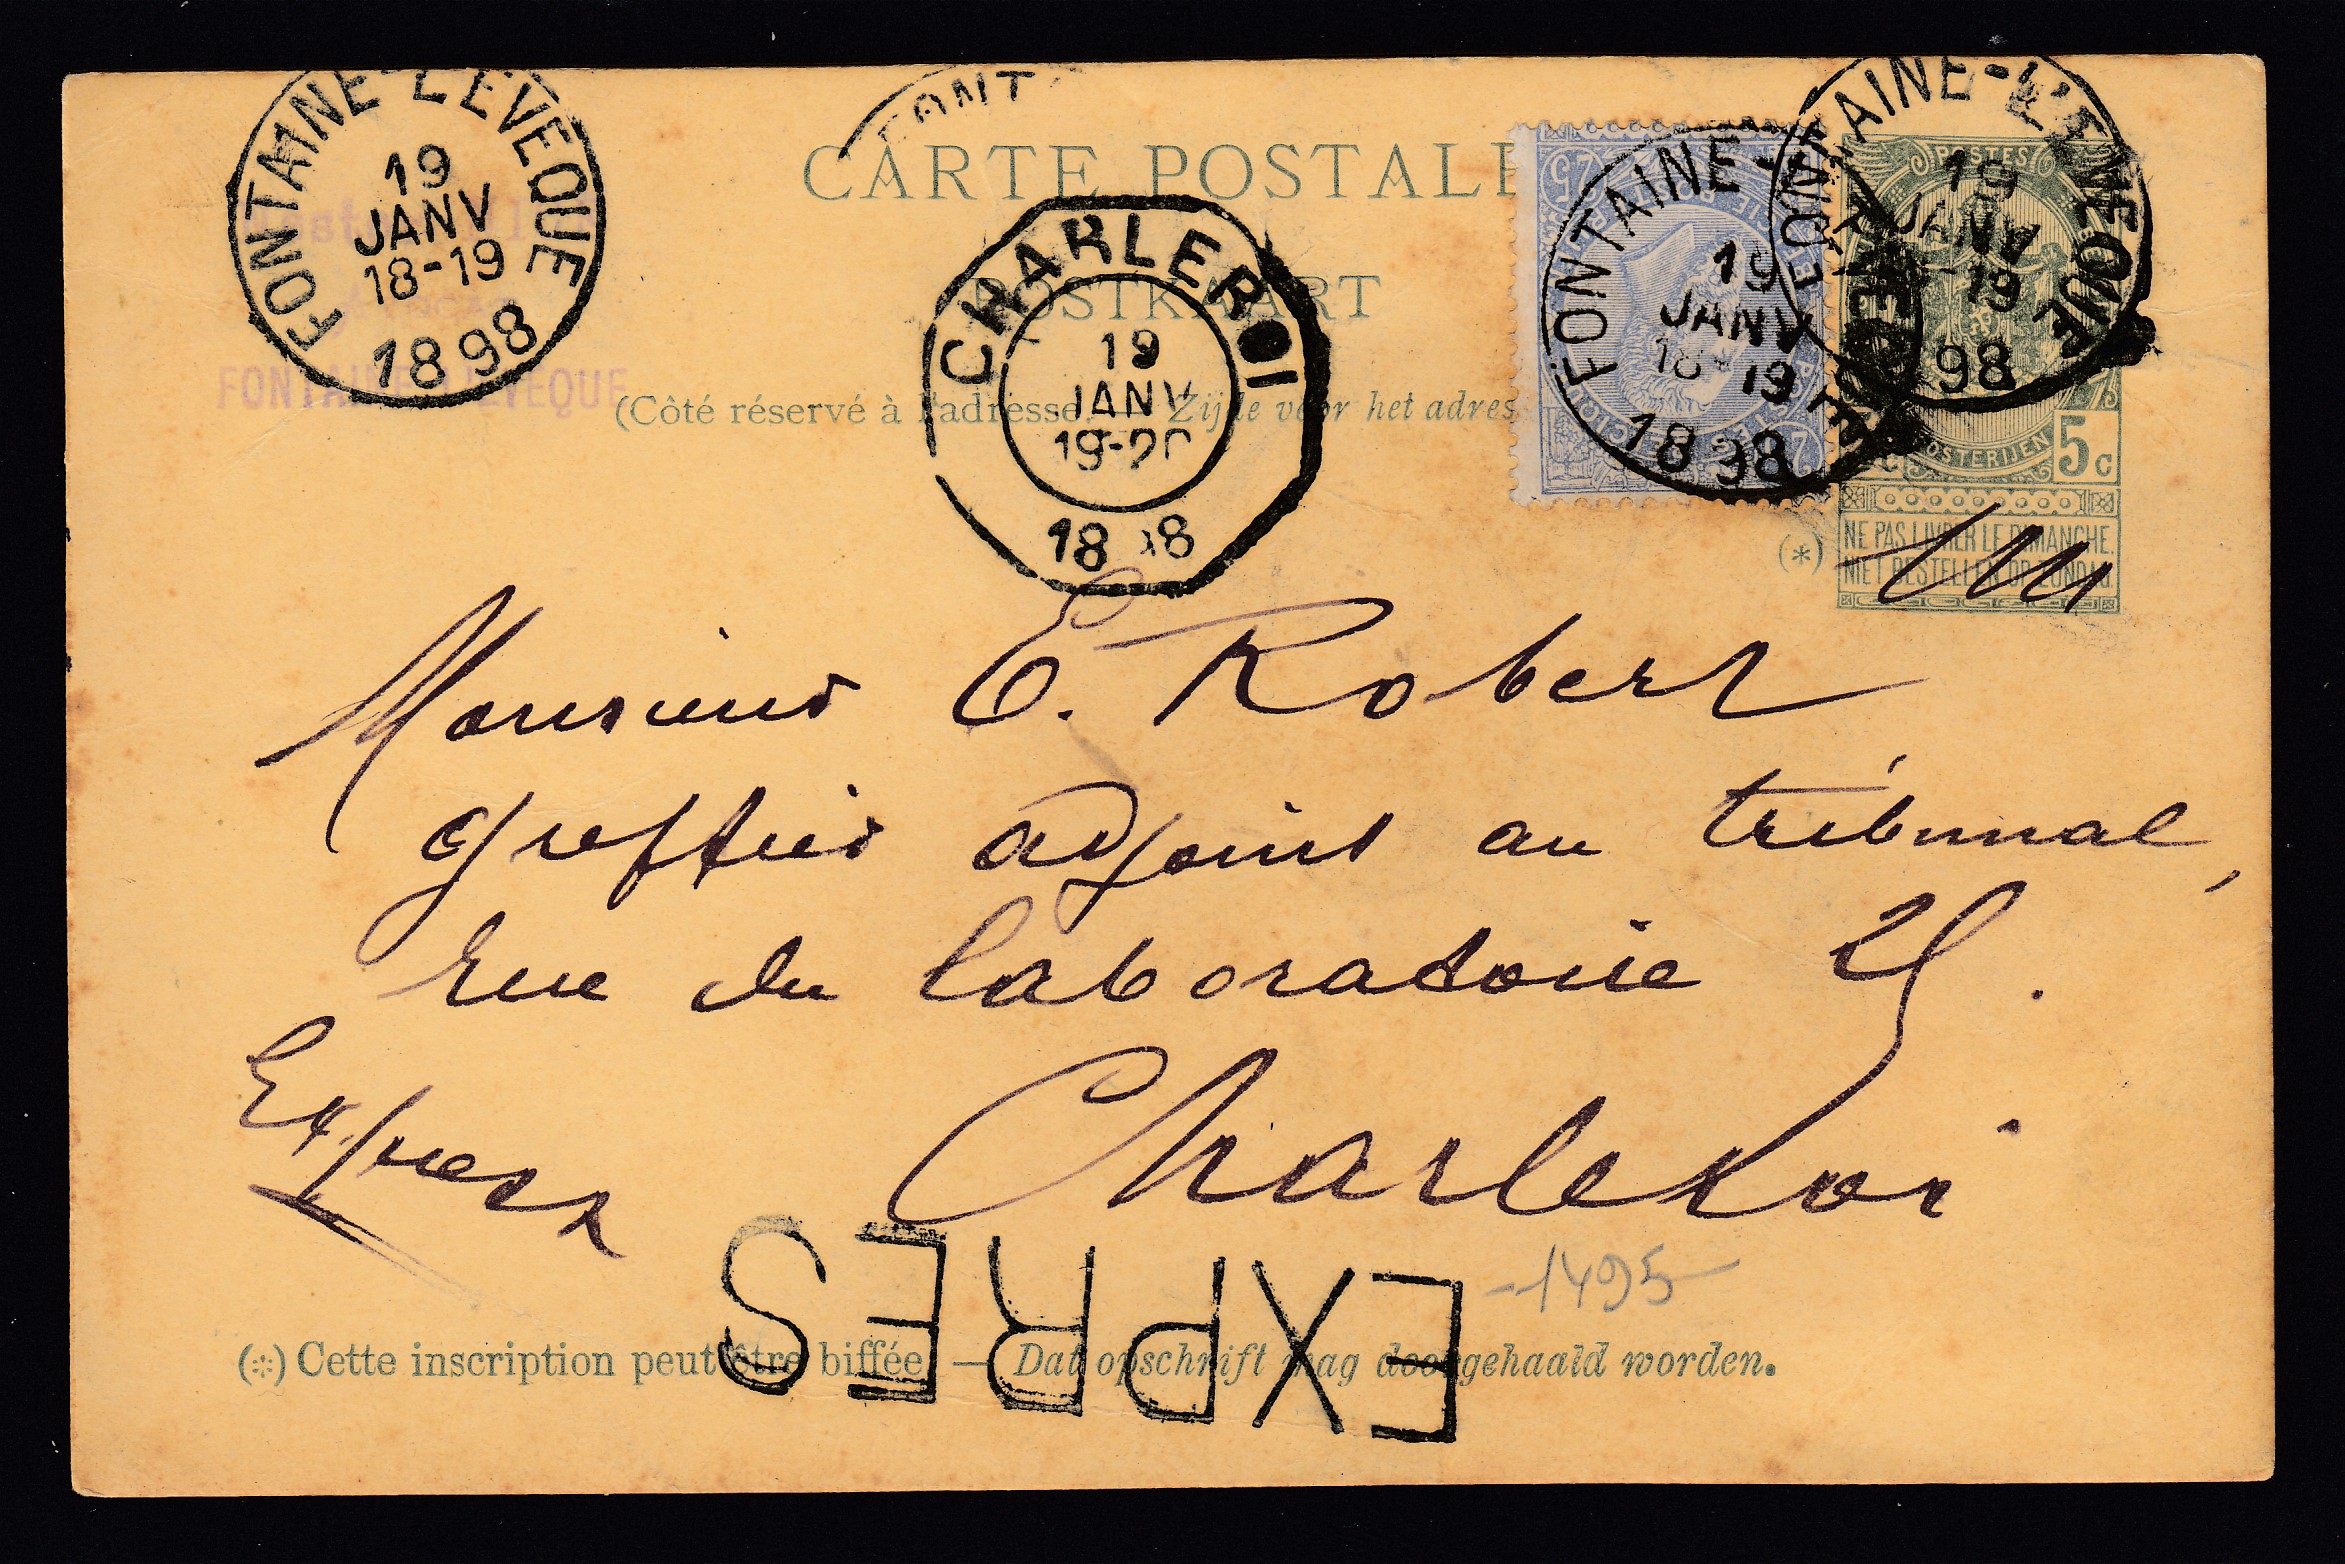 FONTAINE-L'EVEQUE
19
JANV
18-19
1898
FONT
CARTE POSTALE
POSTKAART
CHARLEROI
19
JANV
19-20
18 98
FONTAINE-
19
JANV
18-19
1898
FONTAINE-L'EVEQUE
19
JANV
19
98
POSTES
25
POSTERIJEN
5c
FONTAINE L'EVEQUE
(Côté réservé à l'adresse. Zijde voor het adres
(*)
NE PAS LIVRER LE DIMANCHE.
NIET BESTELLEN OP ZONDAG.
Monsieur E. Robert
greffier adjoint au tribunal,
rue du laboratoire 21.
Express
Charleroi
EXPRES
-1495-
(*) Cette inscription peut être biffée. — Dat opschrift mag doorgehaald worden.